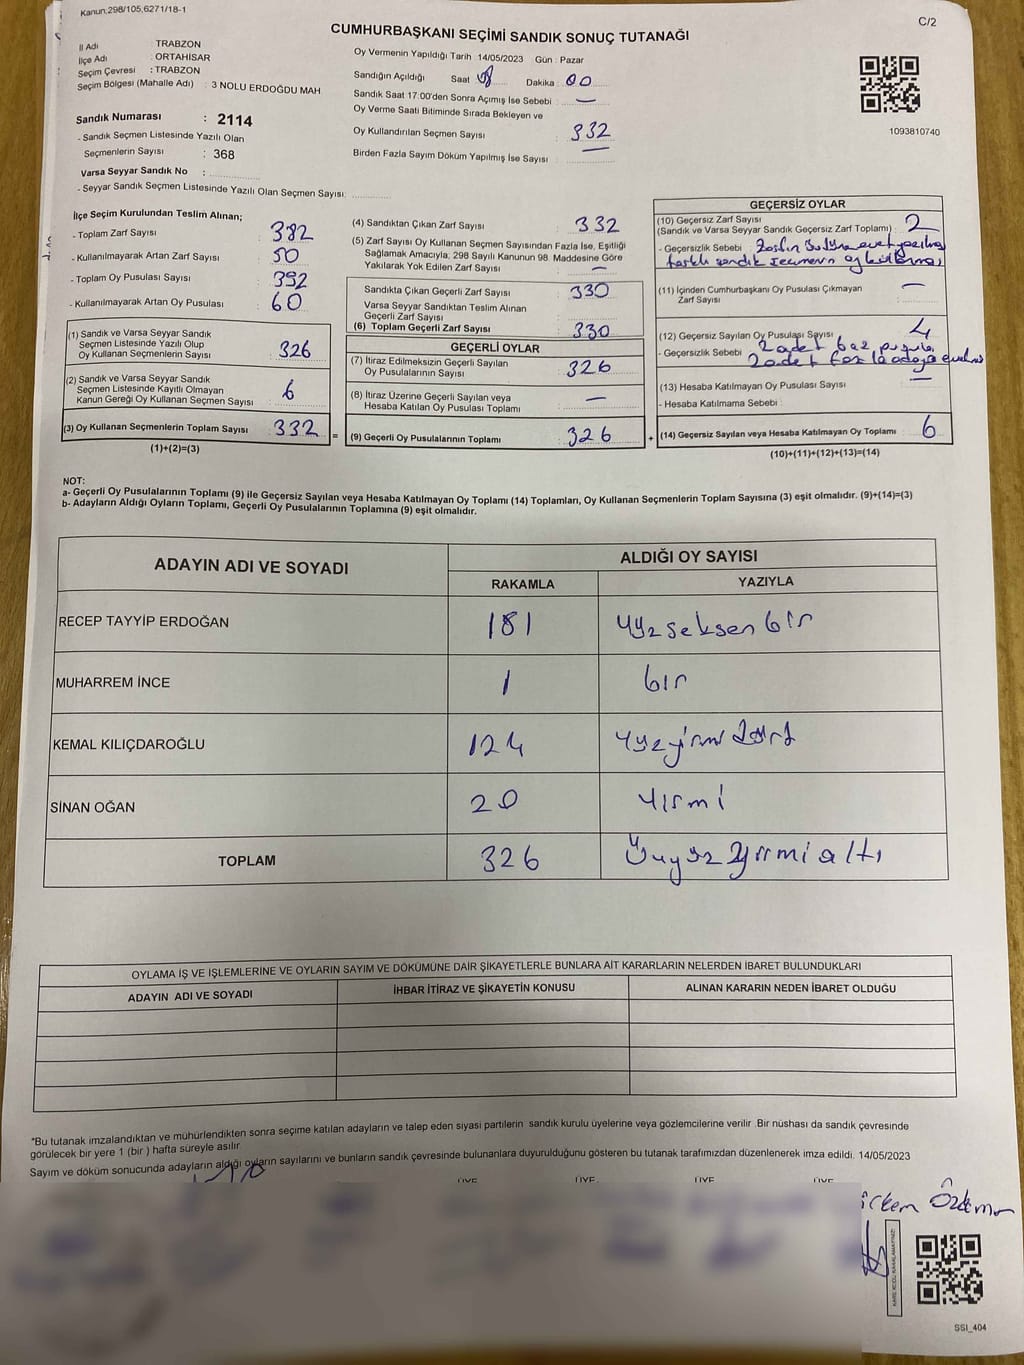 Kanun:298/105,6271/18-1
C/2
CUMHURBAŞKANI SEÇİMİ SANDIK SONUÇ TUTANAĞI
İl Adı TRABZON
İlçe Adı : ORTAHİSAR
Seçim Çevresi : TRABZON
Seçim Bölgesi (Mahalle Adı) : 3 NOLU ERDOĞDU MAH
Sandık Numarası : 2114
- Sandık Seçmen Listesinde Yazılı Olan
Seçmenlerin Sayısı : 368
Varsa Seyyar Sandık No :
- Seyyar Sandık Seçmen Listesinde Yazılı Olan Seçmen Sayısı:
Oy Vermenin Yapıldığı Tarih 14/05/2023 Gün : Pazar
Sandığın Açıldığı Saat Dakika : 00
Sandık Saat 17:00'den Sonra Açımış İse Sebebi : —
Oy Verme Saati Bitiminde Sırada Bekleyen ve
Oy Kullandırılan Seçmen Sayısı : 332
Birden Fazla Sayım Döküm Yapılmış İse Sayısı : —
1093810740
İlçe Seçim Kurulundan Teslim Alınan;
- Toplam Zarf Sayısı : 382
- Kullanılmayarak Artan Zarf Sayısı : 50
- Toplam Oy Pusulası Sayısı : 392
- Kullanılmayarak Artan Oy Pusulası : 60
(1) Sandık ve Varsa Seyyar Sandık
Seçmen Listesinde Yazılı Olup
Oy Kullanan Seçmenlerin Sayısı : 326
(2) Sandık ve Varsa Seyyar Sandık
Seçmen Listesinde Kayıtlı Olmayan
Kanun Gereği Oy Kullanan Seçmen Sayısı : 6
(3) Oy Kullanan Seçmenlerin Toplam Sayısı : 332 =
(1)+(2)=(3)
(4) Sandıktan Çıkan Zarf Sayısı : 332
(5) Zarf Sayısı Oy Kullanan Seçmen Sayısından Fazla İse, Eşitliği
Sağlamak Amacıyla, 298 Sayılı Kanunun 98. Maddesine Göre
Yakılarak Yok Edilen Zarf Sayısı : —
Sandıkta Çıkan Geçerli Zarf Sayısı : 330
Varsa Seyyar Sandıktan Teslim Alınan
Geçerli Zarf Sayısı
(6) Toplam Geçerli Zarf Sayısı : 330
GEÇERLİ OYLAR
(7) İtiraz Edilmeksizin Geçerli Sayılan
Oy Pusulalarının Sayısı : 326
(8) İtiraz Üzerine Geçerli Sayılan veya
Hesaba Katılan Oy Pusulası Toplamı : —
(9) Geçerli Oy Pusulalarının Toplamı : 326 +
GEÇERSİZ OYLAR
(10) Geçersiz Zarf Sayısı
(Sandık ve Varsa Seyyar Sandık Geçersiz Zarf Toplamı) : 2
- Geçersizlik Sebebi : Zarfın evet yazılması
farklı sandık seçmenin oy kullanması
(11) İçinden Cumhurbaşkanı Oy Pusulası Çıkmayan
Zarf Sayısı : —
(12) Geçersiz Sayılan Oy Pusulası Sayısı : 4
- Geçersizlik Sebebi : 2 adet boş pusula
2 adet fazla adaya evet
(13) Hesaba Katılmayan Oy Pusulası Sayısı : —
- Hesaba Katılmama Sebebi :
(14) Geçersiz Sayılan veya Hesaba Katılmayan Oy Toplamı : 6
(10)+(11)+(12)+(13)=(14)
NOT:
a- Geçerli Oy Pusulalarının Toplamı (9) ile Geçersiz Sayılan veya Hesaba Katılmayan Oy Toplamı (14) Toplamları, Oy Kullanan Seçmenlerin Toplam Sayısına (3) eşit olmalıdır. (9)+(14)=(3)
b- Adayların Aldığı Oyların Toplamı, Geçerli Oy Pusulalarının Toplamına (9) eşit olmalıdır.
ADAYIN ADI VE SOYADI
ALDIĞI OY SAYISI
RAKAMLA YAZIYLA
RECEP TAYYİP ERDOĞAN 181 yüzseksen bir
MUHARREM İNCE 1 bir
KEMAL KILIÇDAROĞLU 124 yüzyirmi dört
SİNAN OĞAN 20 Yirmi
TOPLAM 326 Üçyüz Yirmi altı
OYLAMA İŞ VE İŞLEMLERİNE VE OYLARIN SAYIM VE DÖKÜMÜNE DAİR ŞİKAYETLERLE BUNLARA AİT KARARLARIN NELERDEN İBARET BULUNDUKLARI
ADAYIN ADI VE SOYADI İHBAR İTİRAZ VE ŞİKAYETİN KONUSU ALINAN KARARIN NEDEN İBARET OLDUĞU
*Bu tutanak imzalandıktan ve mühürlendikten sonra seçime katılan adayların ve talep eden siyasi partilerin sandık kurulu üyelerine veya gözlemcilerine verilir. Bir nüshası da sandık çevresinde
görülecek bir yere 1 (bir ) hafta süreyle asılır.
Sayım ve döküm sonucunda adayların aldığı oyların sayılarını ve bunların sandık çevresinde bulunanlara duyurulduğunu gösteren bu tutanak tarafımızdan düzenlenerek imza edildi. 14/05/2023
ÜYE ÜYE ÜYE ÜYE
Özdemir
KARE KODU KARALAMAYINIZ!
SSI_404